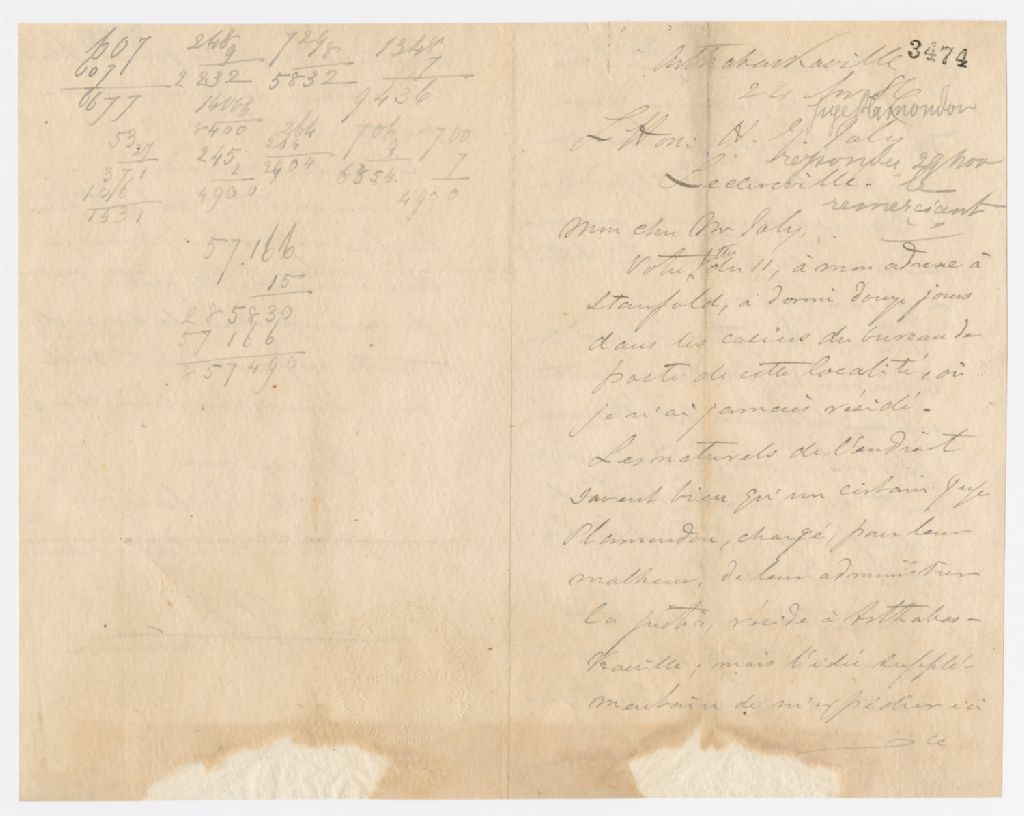 607
607
6677
248
9
2 232
729
8
5832
1348
7
9436
1406
8400
53
27
371
1.06
1431
245
2
4900
264
264
2904
706
9
6354
700
7
4900
57.166
15
285830
57 166
857490
3474
Arthabaskaville
24 nov
Juge Plamondon
L'Hon: H. G. Joly
répondu 29 nov
Leclercville.
le
remerciant
Mon cher Mr Joly,
Votre du 11, à mon adresse à
Stanfold, a dormi douze jours
dans les casiers du bureau de
poste de cette localité, où
je n'ai jamais résidé.
Les naturels de l'endroit
savent bien qu'un certain Juge
Plamondon, chargé, pour leur
malheur, de leur administrer
la justice, réside à Arthabas-
kaville; mais l'idée supplé-
mentaire de m'expédier ici
ce